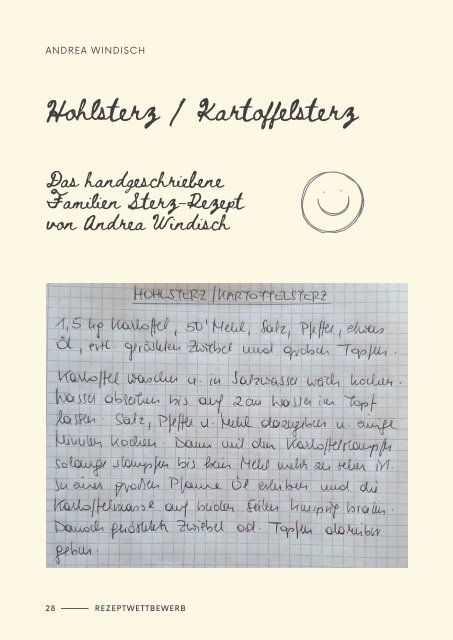 ANDREA WINDISCH
Hohlsterz / Kartoffelsterz
Das handgeschriebene
Familien Sterz-Rezept
von Andrea Windisch
HOHLSTERZ/KARTOFFELSTERZ
1,5 kg Kartoffel, Mehl, Salz, Pfeffer, etwas
Öl, evtl. gerösteten Zwiebel und groben Topfen.
Kartoffel waschen u. in Salzwasser weich kochen.
Wasser abseihen bis auf 2 cm Wasser im Topf
lassen Salz, Pfeffer u. Mehl dazugeben u. einige
Minuten kochen. Dann mit dem Kartoffelstampfer
solange stampfen bis kein Mehl mehr zu sehen ist.
In einer großen Pfanne Öl erhitzen und die
Kartoffelmasse auf beiden Seiten knusprig braten.
Danach geröstete Zwiebel od. Topfen darüber
geben.
28 REZEPTWETTBEWERB